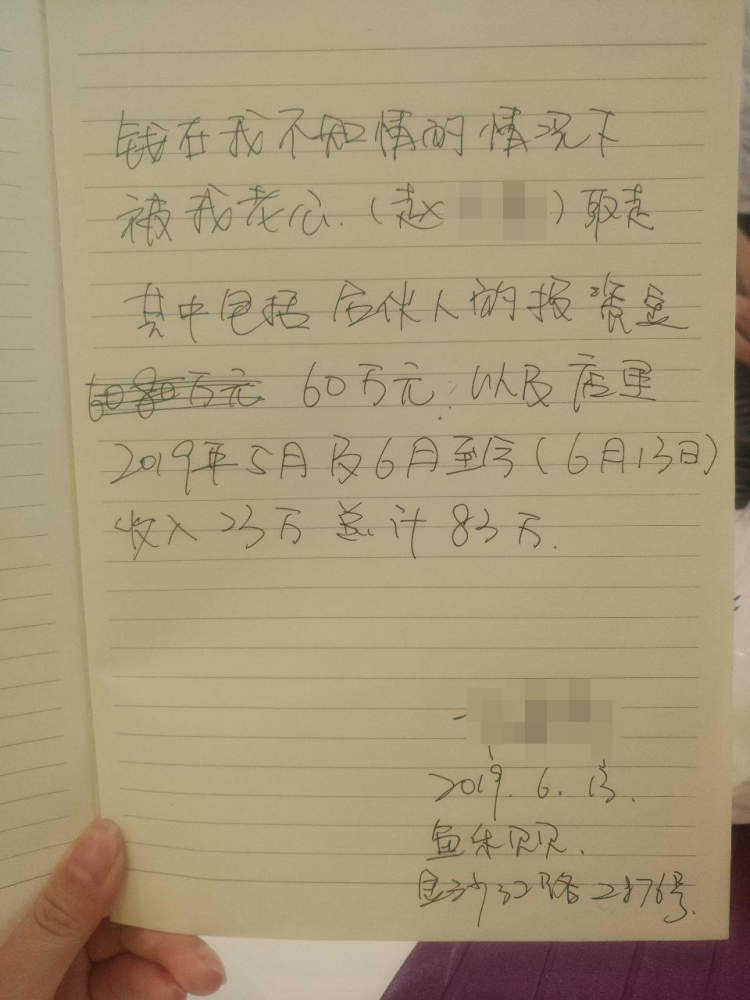 钱在我不知情的情况下
被我老公.(赵 )取走
其中包括合伙人的投资金
60万元.以及店里
2019年5月及6月至今(6月13日)
收入23万总计83万.
2019.6.13.
鱼乐贝贝.
金沙江路2876号.